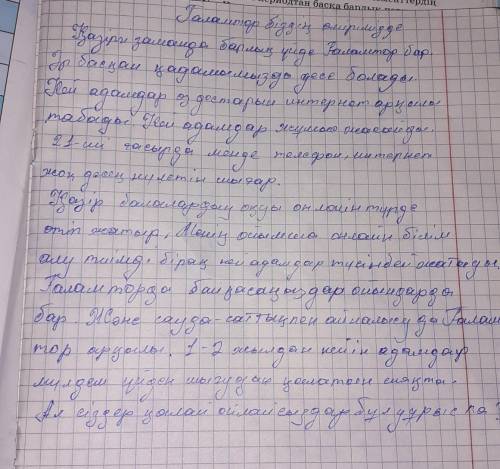 периодтан басқа барлық
Ғаламтор біздің өмірімізде
Қазіргі заманда барлық үйде Ғаламтор бар.
Әр басқан қадамымызда десе болады.
Кей адамдар өз достарын интернет арқылы
табады. Кей адамдар жұмыс жасайды.
21-ші ғасырда менде телефон, интернет
жоқ десең күлетін шығар.
Қазір балалардың оқуы онлайн түрде
өтіп жатыр, Менің ойымша онлайн білім
алу тиімді, бірақ кей адамдар түсінбей жатады.
Ғаламторда байқасаңыздар ойындарда
бар. Және сауда-саттықпен айналысу да Ғалам
тор арқылы. 1-2 жылдан кейін адамдар
мүлдем үйден шығудан қалатын сияқты.
Ал сіздер қалай ойлайсыздар бұл дұрыс па?